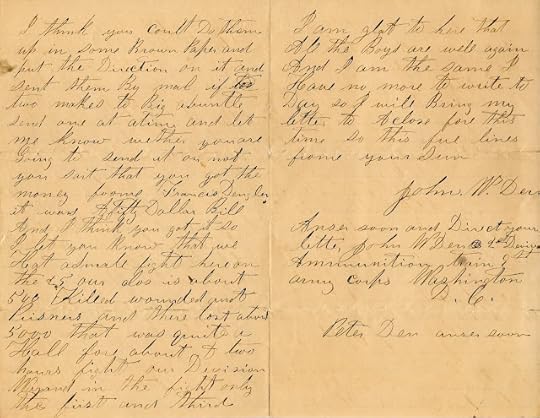 I think you coult Do them
up in some Brown Paper and
put the Direction on it and
sent them By mal if
two makes to Big abuntle
send one at atime and let
me know wether you are
Going to send it or not
you sait that you got the
money frome Francis Dengler
it was Fifty Dollar Bill
And I think you got it so
I let you know that we
Hat fight here on
the our los is about
500 Killed wounded and
Prisners and there lost about
5000 that was quite a
Hall for about two
hours fight our Division
in the fight only
the first and third
I am glat to here that
All the Boys are well again
And I am the same I
Have no more to write to
Day so I will Bring my
letter to Aclose fore this
time so this few lines
frome your Sun
John W. Den
Anser soon and Direct your
letter John W Den 2nd
Ammunition Train 9th
army corps Washington
D. C.
Peter Den anser soon